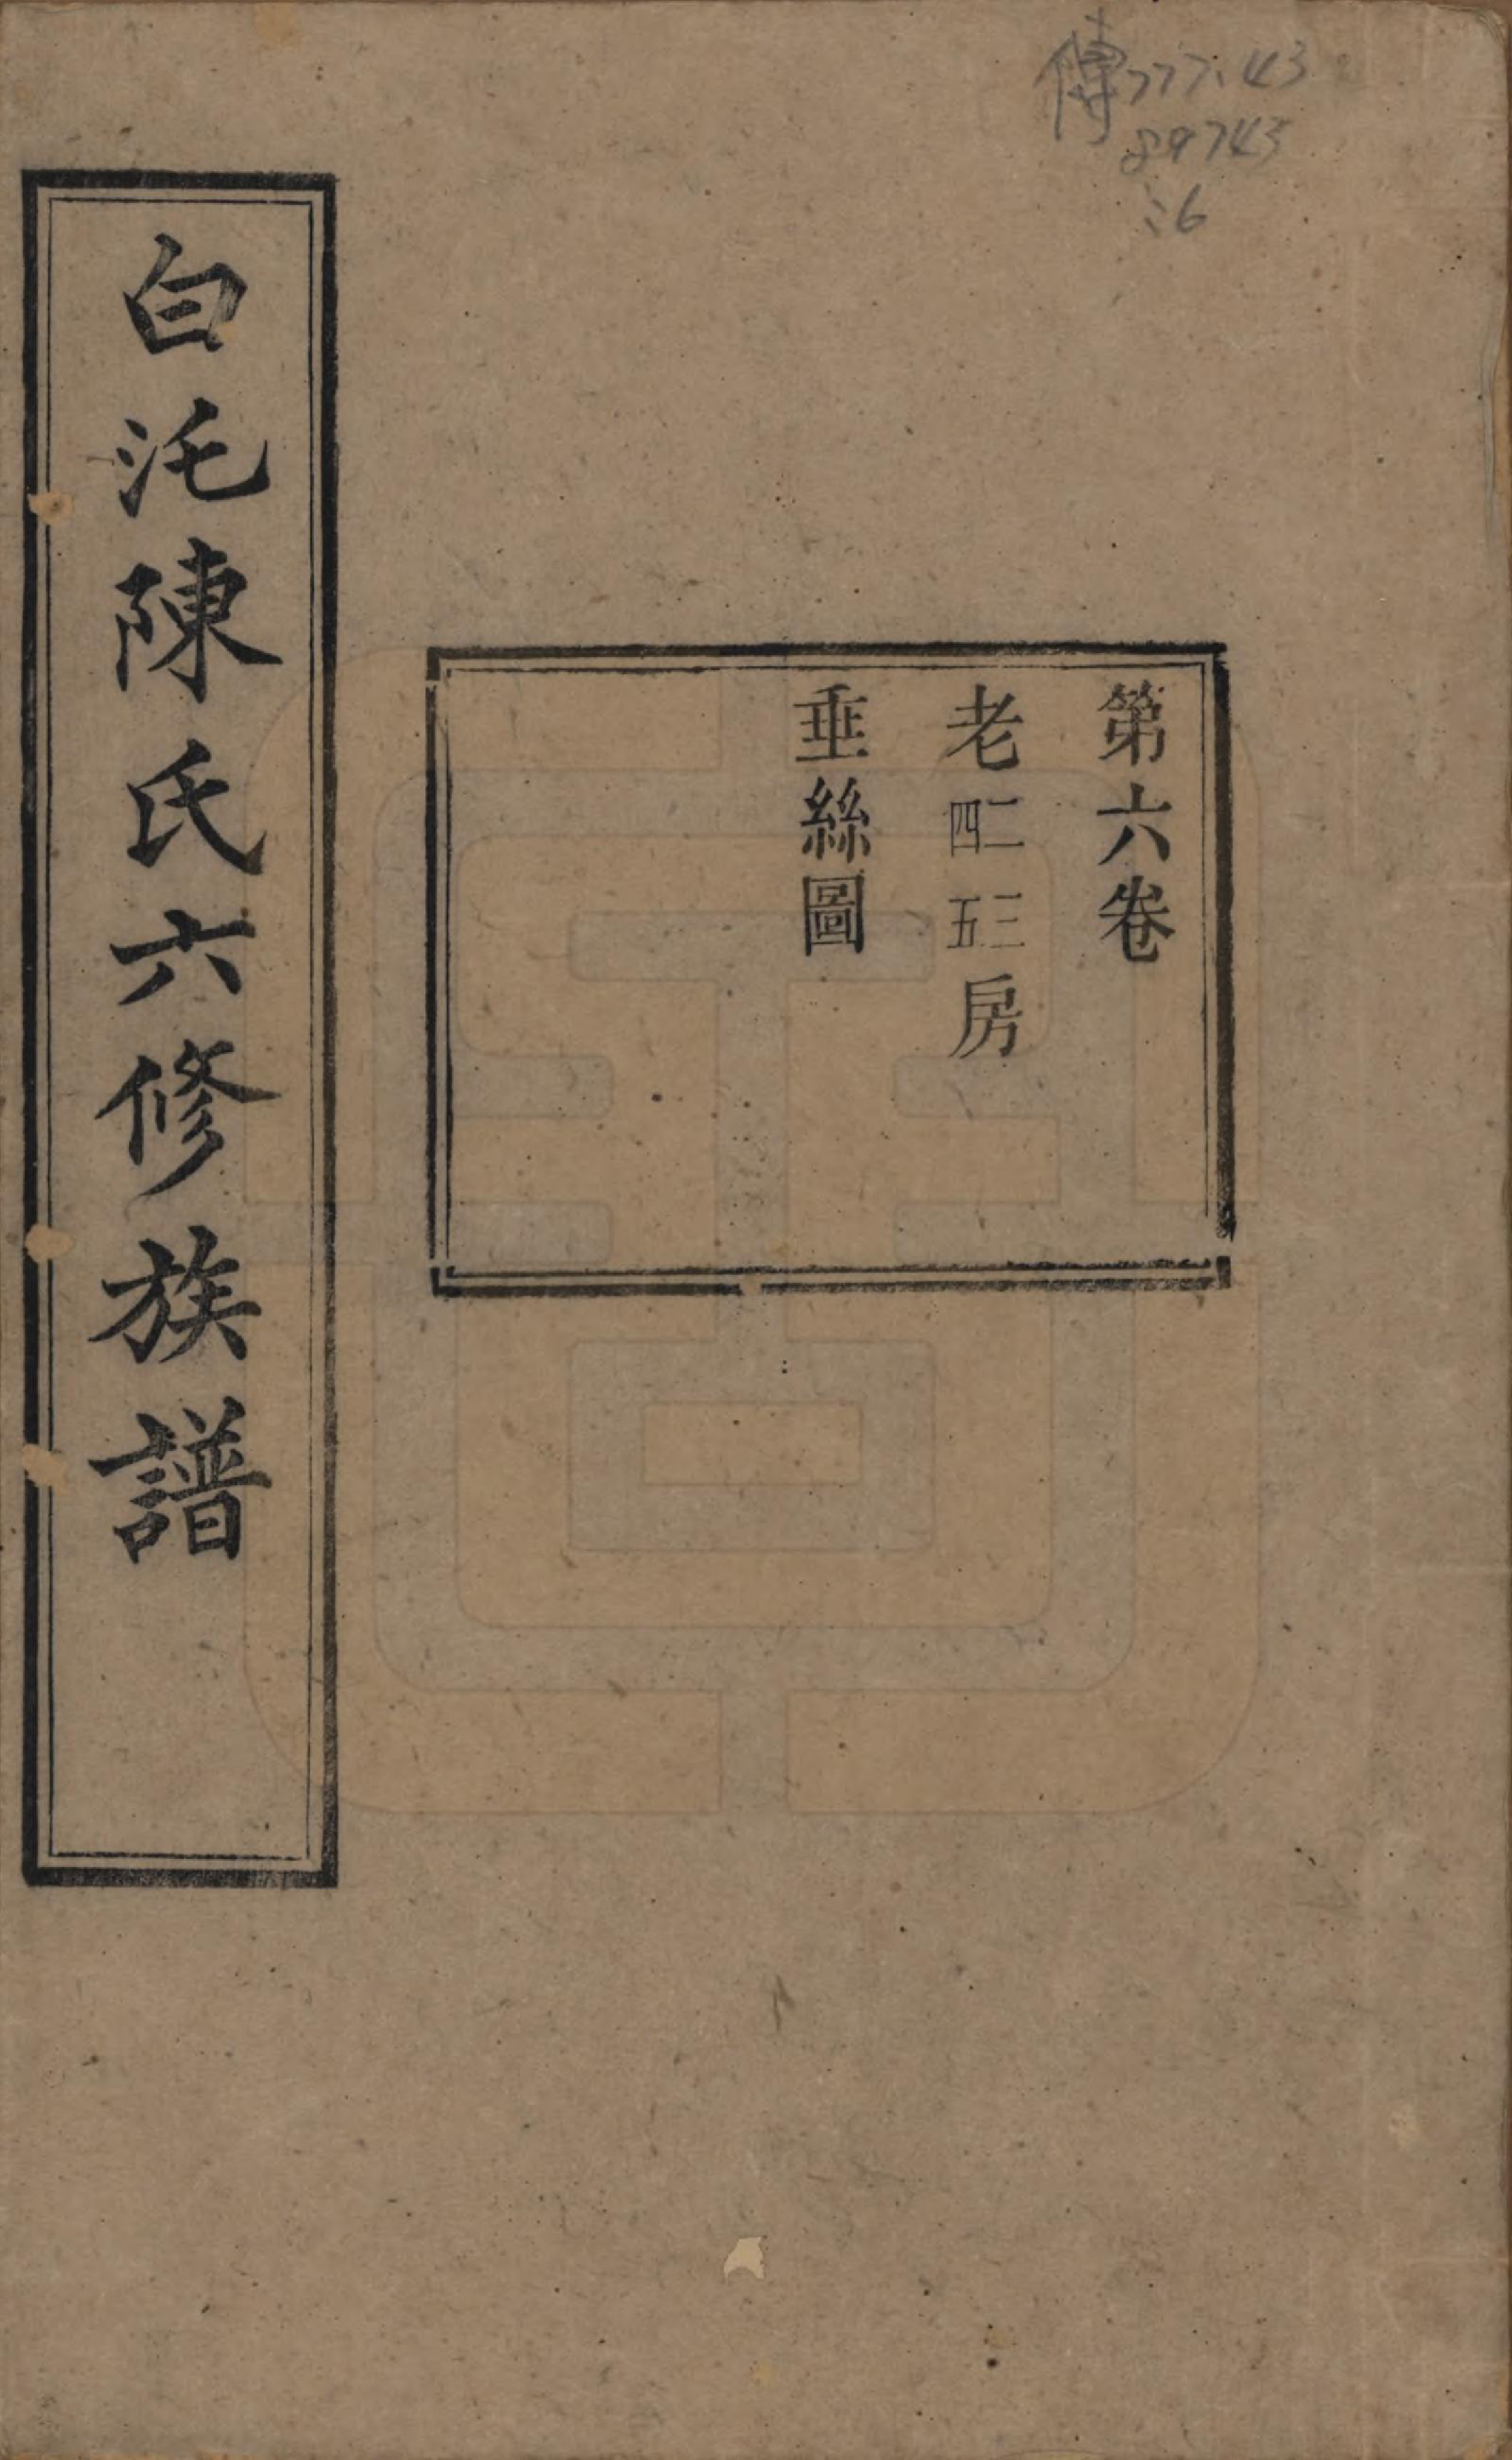 傳777.43
89743
:6
第六卷
老二三四五房
垂絲圖
白沱陳氏六修族譜